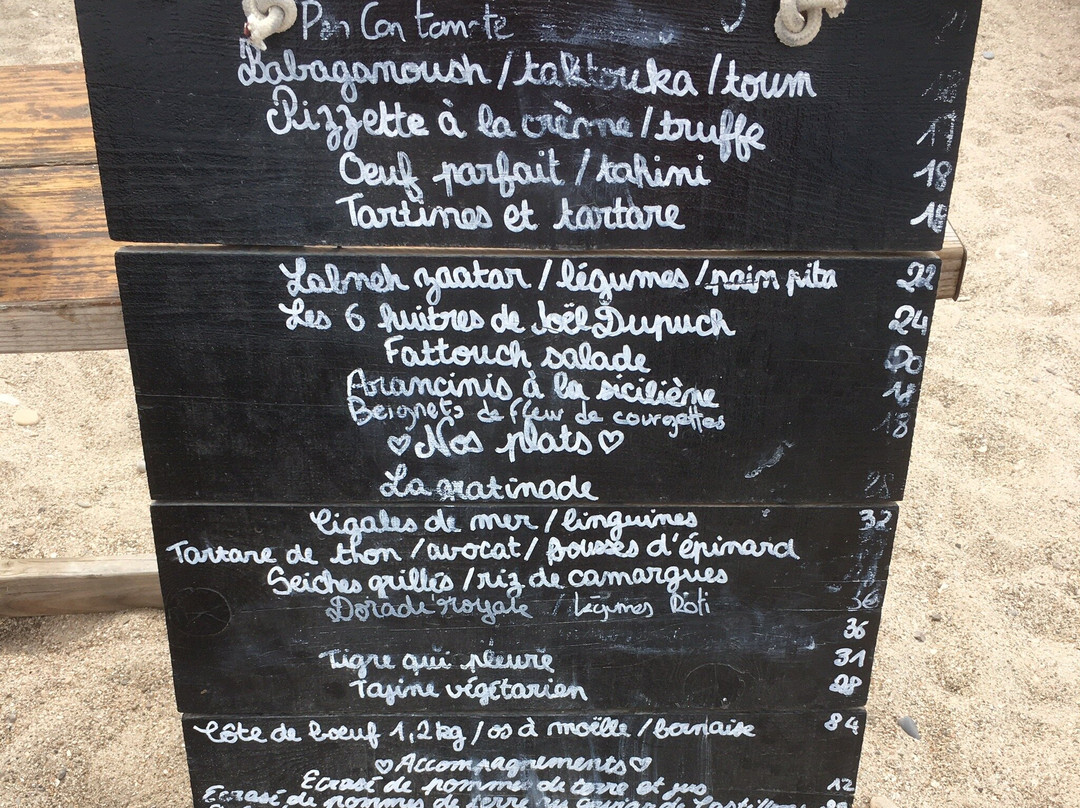 Pan Con tomate
Babaganoush / taktouka / toum
Pizzette à la crème / truffe 17
Oeuf parfait / tahini 18
Tartines et tartare
Labneh zaatar / légumes / pain pita 22
Les 6 huîtres de Joël Dupuch 24
Fattouch salade 20
Arancinis à la siciliène
Beignets de fleur de courgettes 18
♡ Nos plats ♡
La gratinade 28
Cigales de mer / linguines 32
Tartare de thon / avocat / pousses d'épinard
Seiches grillés / riz de camargues
Dorade royale / légumes Roti 36
36
Tigre qui pleure 31
Tajine végétarien 28
Côte de boeuf 1,2kg / os à moëlle / bernaise 84
♡ Accompagnements ♡
Ecrasé de pommes de terre et jus 12
Ecrasé de pommes de terre